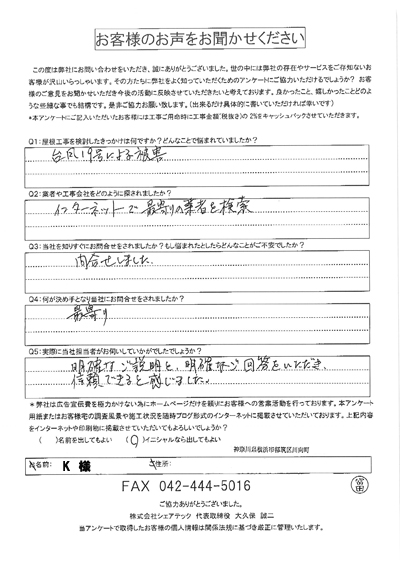 お客様のお声をお聞かせください
この度は弊社にお問い合わせをいただき、誠にありがとうございました。世の中には弊社の存在やサービスをご存知ないお
客様が沢山いらっしゃいます。その方たちに弊社をよく知っていただくためのアンケートにご協力いただけるでしょうか？ お客
様のご意見をお聞かせいただき今後の活動に反映させていただきたいと考えております。良かったこと、嬉しかったことどのよ
うな些細な事でも結構です。是非ご協力お願い致します。（出来るだけ具体的に書いていただければ幸いです）
*本アンケートにご記入いただいたお客様には工事ご用命時に工事金額"税抜き"の2%をキャッシュバックさせていただきます。
Q1：屋根工事を検討したきっかけは何ですか？どんなことで悩まれていましたか？
台風19号による被害
Q2：業者や工事会社をどのように探されましたか？
インターネットで最寄りの業者を検索
Q3：当社を知りすぐにお問合せをされましたか？もし悩まれたとしたらどんなことがご不安でしたか？
問合せしました。
Q4：何が決め手となり当社にお問合せをされましたか？
最寄り
Q5：実際に当社担当者がお伺いしていかがでしたでしょうか？
明確なご説明と、明確なご回答をいただき、
信頼できると感じました。
*弊社は広告宣伝費を極力かけない為にホームページだけを頼りにお客様への営業活動を行っております。本アンケート
用紙またはお客様宅の調査風景や施工状況を随時ブログ形式のインターネットに掲載させていただいております。上記内容
をインターネットや印刷物に掲載させていただいてもよろしいでしょうか？
（　）名前を出してもよい （○）イニシャルなら出してもよい
神奈川県横浜市都筑区川向町
お名前： K 様 ご住所：
FAX 042-444-5016
ご協力ありがとうございました。
株式会社シェアテック 代表取締役 大久保 誠二
当アンケートで取得したお客様の個人情報は関係法規に基づき厳正に管理いたします。